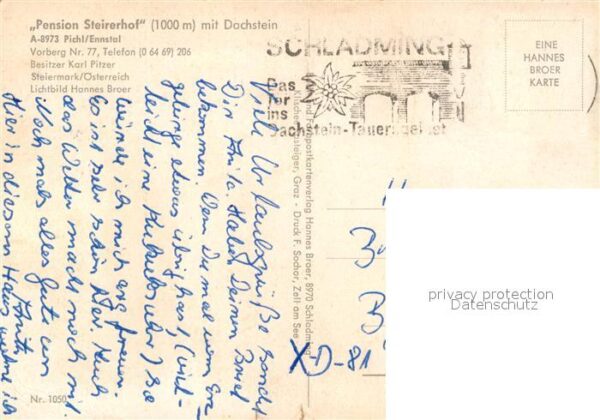 „Pension Steirerhof" (1000 m) mit Dachstein
A-8973 Pichl/Ennstal
Vorberg Nr. 77, Telefon (0 64 69) 206
Besitzer Karl Pitzer
Steiermark/Österreich
Lichtbild Hannes Broer
SCHLADMING
Das
Tor
ins
Dachstein-Tauerngebiet
EINE
HANNES
BROER
KARTE
Viele Urlaubsgrüße sendet
Dir Anita. Habe Deinen Brief
bekommen. Wenn Du mal vom
etwas übrig hast, (viel-
leicht eine
ich mich freuen.
Es ist sehr schön hier. Auch
das Wetter macht noch mit.
Noch mals alles Gute
Anita
Hier in diesem Haus wohne ich
Hannes Broer, 8970 Schladming
Graz - Druck F. Sochor, Zell am See
XD-81
Nr. 1050
privacy protection
Datenschutz